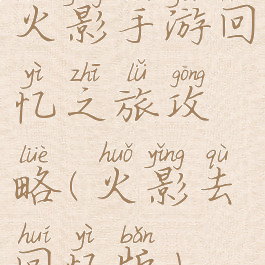 火影手游回
yì zhī lǚ gōng
忆之旅攻
lüè huǒ yǐng qù
略(火影去
huí yì bǎn
回忆版)